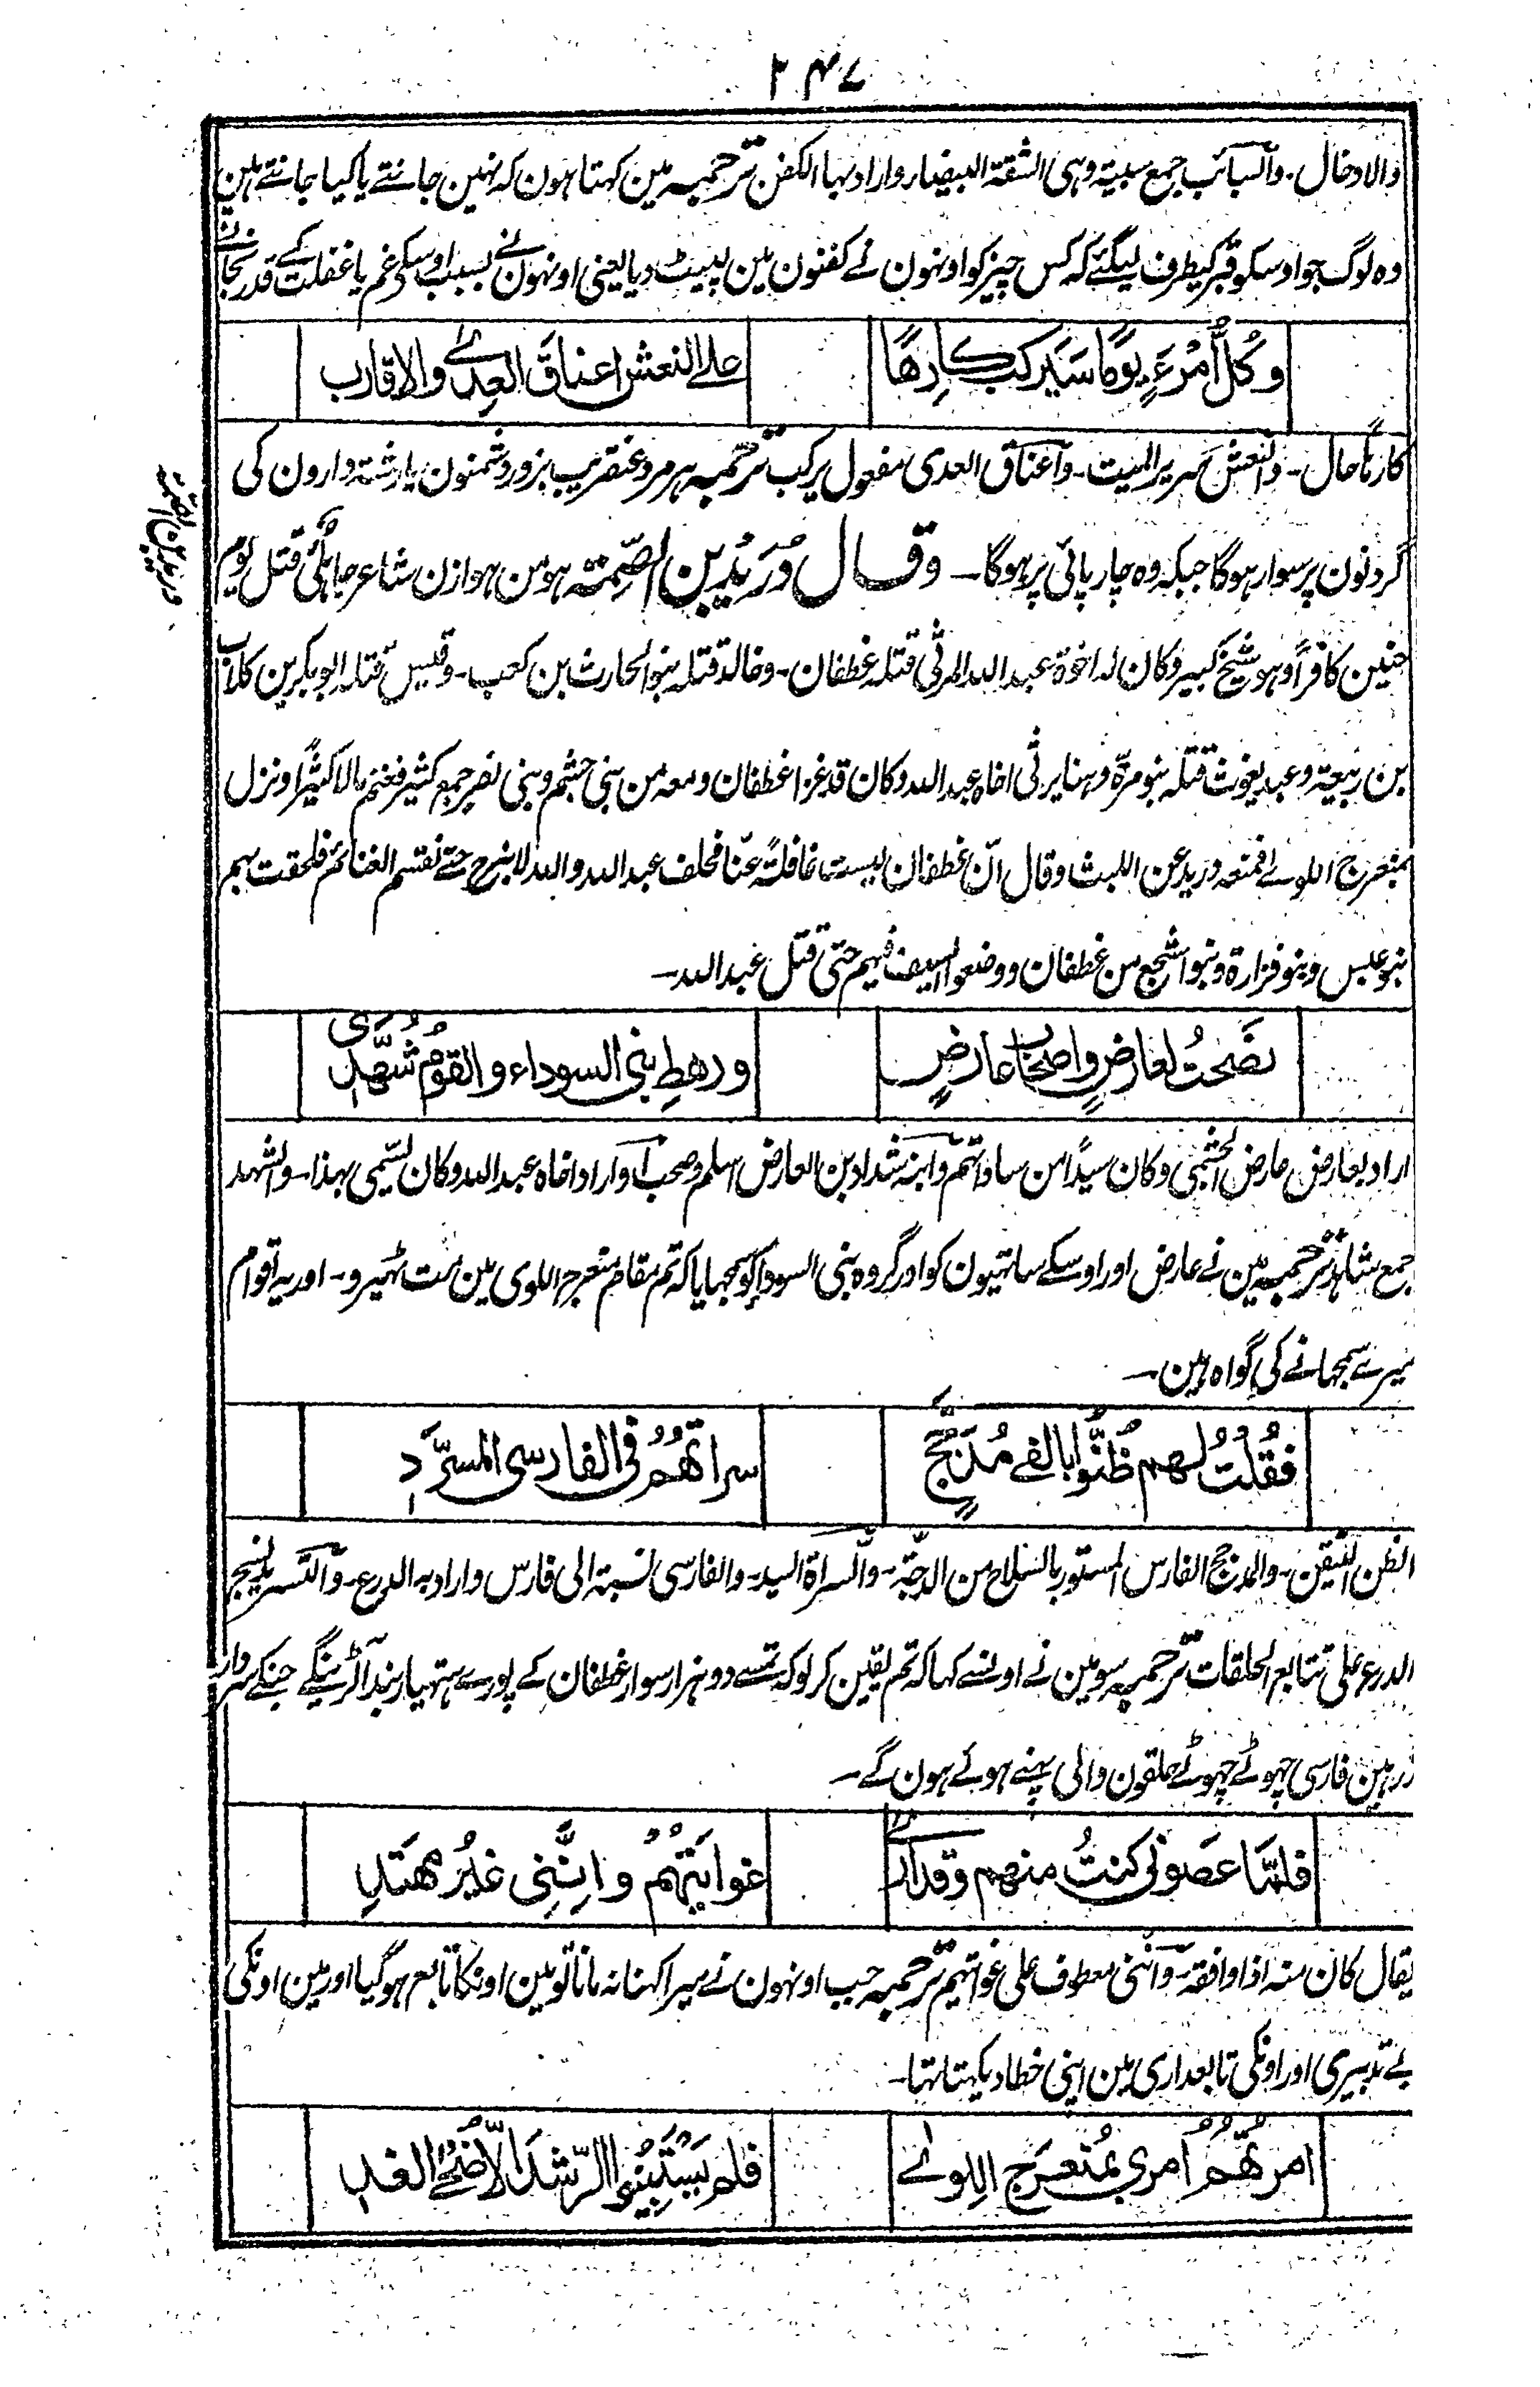 ۲۴۷
والادخال۔ والسبائب جمع سبیبۃ وہی الشقۃ البیضاء واراد بہا الکفن ترجمہ مین کہتا ہون کہ نہین جانتے یا کیا جانتے ہین
وہ لوگ جو اوسکو قبر کیطرف لیگئے کہ کس چیز کو اونہون نے کفنون مین لپیٹ دیا یعنی اونہون نے بسبب اوسکے غم یا غفلت کے قدر نجانے
وَكُلُّ أمْرِءٍ يومًا سَيَركب كارِهًا
على النعش اعناقَ العِدٰے والاقارب
کارہًا حال۔ والنعش سریر المیت۔ واعناق العدی مفعول یرکب ترجمہ ہر مرد عنقریب بزور دشمنون یا رشتہ دارون کی
گردنون پر سوار ہوگا جبکہ وہ چارپائی پر ہوگا۔ وقال دُرَیْدُ بن الصِّمَّۃ ہو من ہوازن شاعر جاہلی قتل یوم
درید بن الصمۃ
حنین کافراً وہو شیخ کبیر وکان لہ اخوۃ عبد اللہ المرثی قتلہ غطفان۔ وخالد قتلہ بنو الحارث بن کعب۔ وقیس قتلہ ابوبکر بن کلاب
بن ربیعۃ وعبد یغوث قتلہ بنو مرۃ وہنا یرثی اخاہ عبد اللہ وکان قد غزا غطفان ومعہ من بنی جشم وبنی نصر جمع کثیر فغنم مالا کثیرًا ونزل
بمنعرج اللوےٰ فمنعہ درید عن اللبث وقال انّ غطفان لیست غافلۃً عنّا فحلف عبد اللہ واللہ لا ابرح حتے نقتسم الغنائم فلحقت بہم
بنو عبس وبنو فزارۃ وبنو اشجع من غطفان ووضعوا السیف فیہم حتی قتل عبد اللہ۔
نصَحتُ لعارضٍ واصحاب عارضٍ
ورهطِ بنى السوداء والقومُ شُهَّدِى
اراد بعارض عارض الجشمی وکان سیدًا من ساداتہم وابنہ شداد بن العارض اسلم وصحب او اراد اخاہ عبد اللہ وکان یسمی بہذا۔ والشہد
جمع شاہد ترجمہ مین نے عارض اور اوسکے ساتہیون کو اور گروہ بنی السوداء کو سمجہایا کہ تم مقام منعرج اللوی مین مت ٹہیرو۔ اور یہ اقوام
میرے سمجہانے کی گواہ ہین۔
فقُلتُ لهم ظُنُّوا بالفَے مُدَجَّجٍ
سراتُهُمُ فى الفارسى المسرَّدِ
الظن التیقن۔ والمدجج الفارس المستور بالسلاح من الدجّۃ۔ والسراۃ السید۔ والفارسی نسبۃ الی فارس واراد بہ الدرع۔ والتسرید نسج
الدرع علی تتابع الحلقات ترجمہ سو مین نے اونسے کہا کہ تم یقین کرلو کہ تمسے دو ہزار سوار غطفان کے پورے ہتہیار بند آلڑینگے جنکے سردار
زرہین فارسی چہوٹے چہوٹے حلقون والی پہنے ہوئے ہون گے۔
فلمّا عصَونى كنتُ منهم وقد ارٰے
غوايتَهُمُ وانِّنى غيُر مُهتَدِ
یقال کان منہ اذا وافقہ۔ واننی معطوف علی غوایتہم ترجمہ جب اونہون نے میرا کہنا نہ مانا تو مین اونکا تابع ہوگیا اور مین اونکی
بے تدبیری اور اونکی تابعداری مین اپنی خطا دیکہتا تہا۔
امرتُهُمُ اَمرى بمُنعَرَجِ اللِوٰے
فلم يَستَبِينُوا الرّشدَ الّا ضُحَے الغدِ